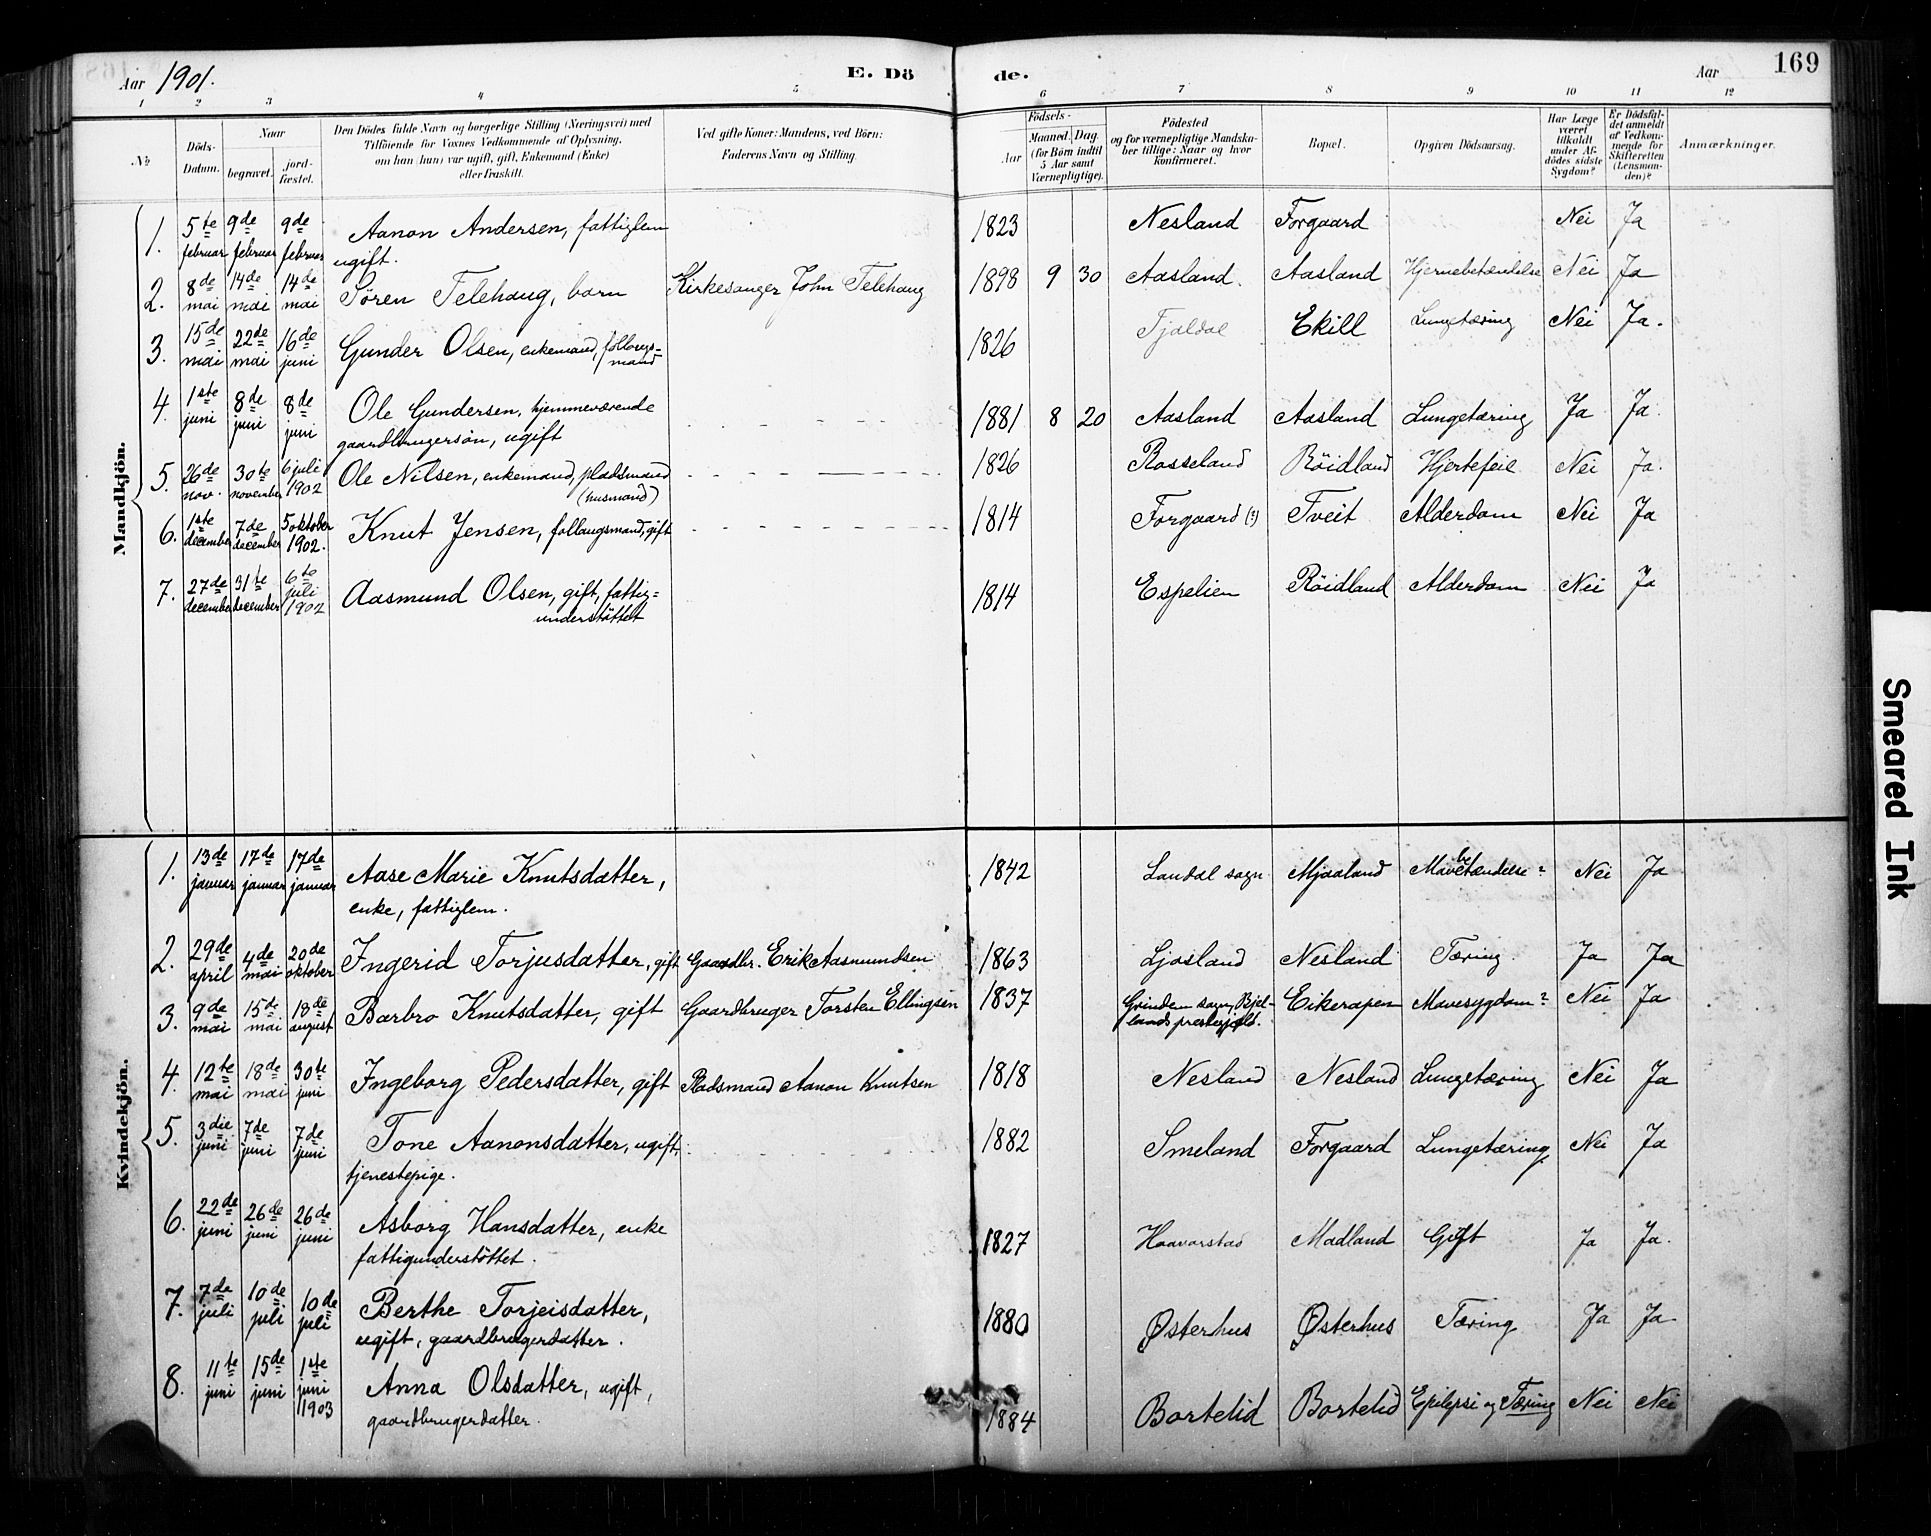 Aar 1901. E. Dö de. Aar 169
1 2 3 4 5 6 7 8 9 10 11 12
№ Döds-Datum. Naar begravet. jordfæstet. Den Dödes fulde Navn og borgerlige Stilling (Næringsvei) med Tilföiende for Voxnes Vedkommende af Oplysning, om han (hun) var ugift, gift, Enkemand (Enke) eller fraskilt. Ved gifte Koner: Mandens, ved Börn: Faderens Navn og Stilling. Födsels- Aar Maaned. Dag. (for Börn indtil 5 Aar samt Værnepligtige). Födested og for værnepligtige Mandskaber tillige: Naar og hvor konfirmeret. Bopæl. Opgiven Dödsaarsag. Har Læge været tilkaldt under Afdödes sidste Sygdom? Er Dödsfaldet anmeldt af Vedkommende for Skifteretten (Lensmanden)? Anmærkninger.
Mandkjön.
1. 5te februar 9de februar 9de februar Aanon Andersen, fattiglem ugift. 1823 Nesland Forgaard Nei Ja
2. 8de mai 14de mai 14de mai Sören Telehaug, barn Kirkesanger John Telehaug 1898 9 30 Aasland. Aasland Hjernebetændelse Nei Ja
3. 15de mai 22de mai 16de juni Gunder Olsen, enkemand, 1826 Tjaldal Ekill Lungetæring Nei Ja.
4. 1ste juni 8de juni 8de juni Ole Gundersen, hjemmeværende gaardbrugersön, ugift 1881 8 20 Aasland Aasland Lungetæring Ja Ja.
5. 26de nov. 30te november 6 juli 1902 Ole Nilsen, enkemand, pladsmand (husmand) 1826 Rosseland Röidland Hjertefeil Nei Ja.
6. 1ste december 7de december 5 oktober 1902. Knut Jensen, follaugsmand, gift 1814 Forgaard (?) Tveit Alderdom Nei Ja
7. 27de december 31te december 6te juli 1902 Aasmund Olsen, gift, fattig=understöttet 1814 Espelien Röidland Alderdom Nei Ja
Kvindekjön.
1. 13de januar 17de januar 17de januar Aase Marie Knutsdatter, enke, fattiglem. 1842 Landal sogn Mjaaland Mavebetændelse? Nei Ja
2. 29de april 4de mai 20de oktober Ingerid Torjusdatter, gift Gaardbr. Erik Aasmundsen 1863 Ljosland Nesland Tæring. Ja Ja
3. 9de mai 15de mai 18de august Barbro Knutsdatter, gift Gaardbruger Torsten Ellingsen 1837 Grindem sogn, Bjellands prestegjeld. Eikerapen Mavesygdom? Nei Ja
4. 12te mai 18de mai 30te juni Ingeborg Pedersdatter, gift Pladsmand Aanon Knutsen 1818 Nesland Nesland Lungetæring Nei Ja
5. 3die juni 7de juni 7de juni Tone Aanonsdatter, ugift, tjenestepige. 1882 Smeland Forgaard Lungetæring Nei Ja
6. 22de juni 26de juni 26de juni Asborg Hansdatter, enke fattigunderstöttet. 1827 Haavorstad Madland Gigt Ja Ja.
7. 7de juli 10de juli 10de juli Berthe Torjeisdatter, ugift, gaardbrugerdatter. 1880 Østerhus Østerhus Tæring Ja Ja
8. 11te juni 15de juni 1ste juni 1903 Anna Olsdatter, ugift, gaardbrugerdatter. 1884 Bortelid Bortelid Epilepsi og Tæring Nei Nei
Smeared Ink